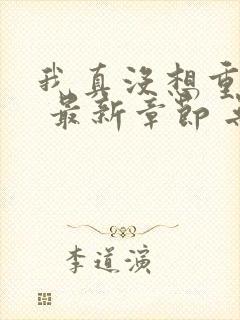 我真没想重
最新章节
李道演